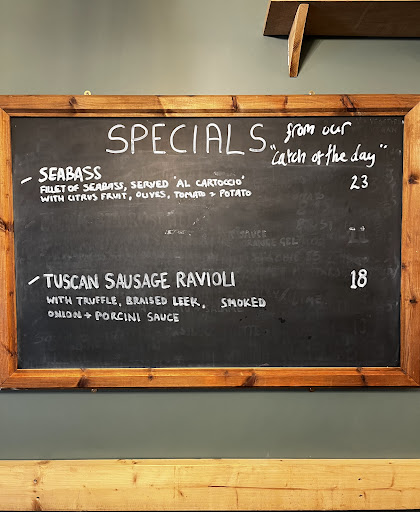 SPECIALS from our
"catch of the day"
- SEABASS 23
FILLET OF SEABASS, SERVED 'AL CARTOCCIO'
WITH CITRUS FRUIT, OLIVES, TOMATO + POTATO
- TUSCAN SAUSAGE RAVIOLI 18
WITH TRUFFLE, BRAISED LEEK, SMOKED
ONION + PORCINI SAUCE